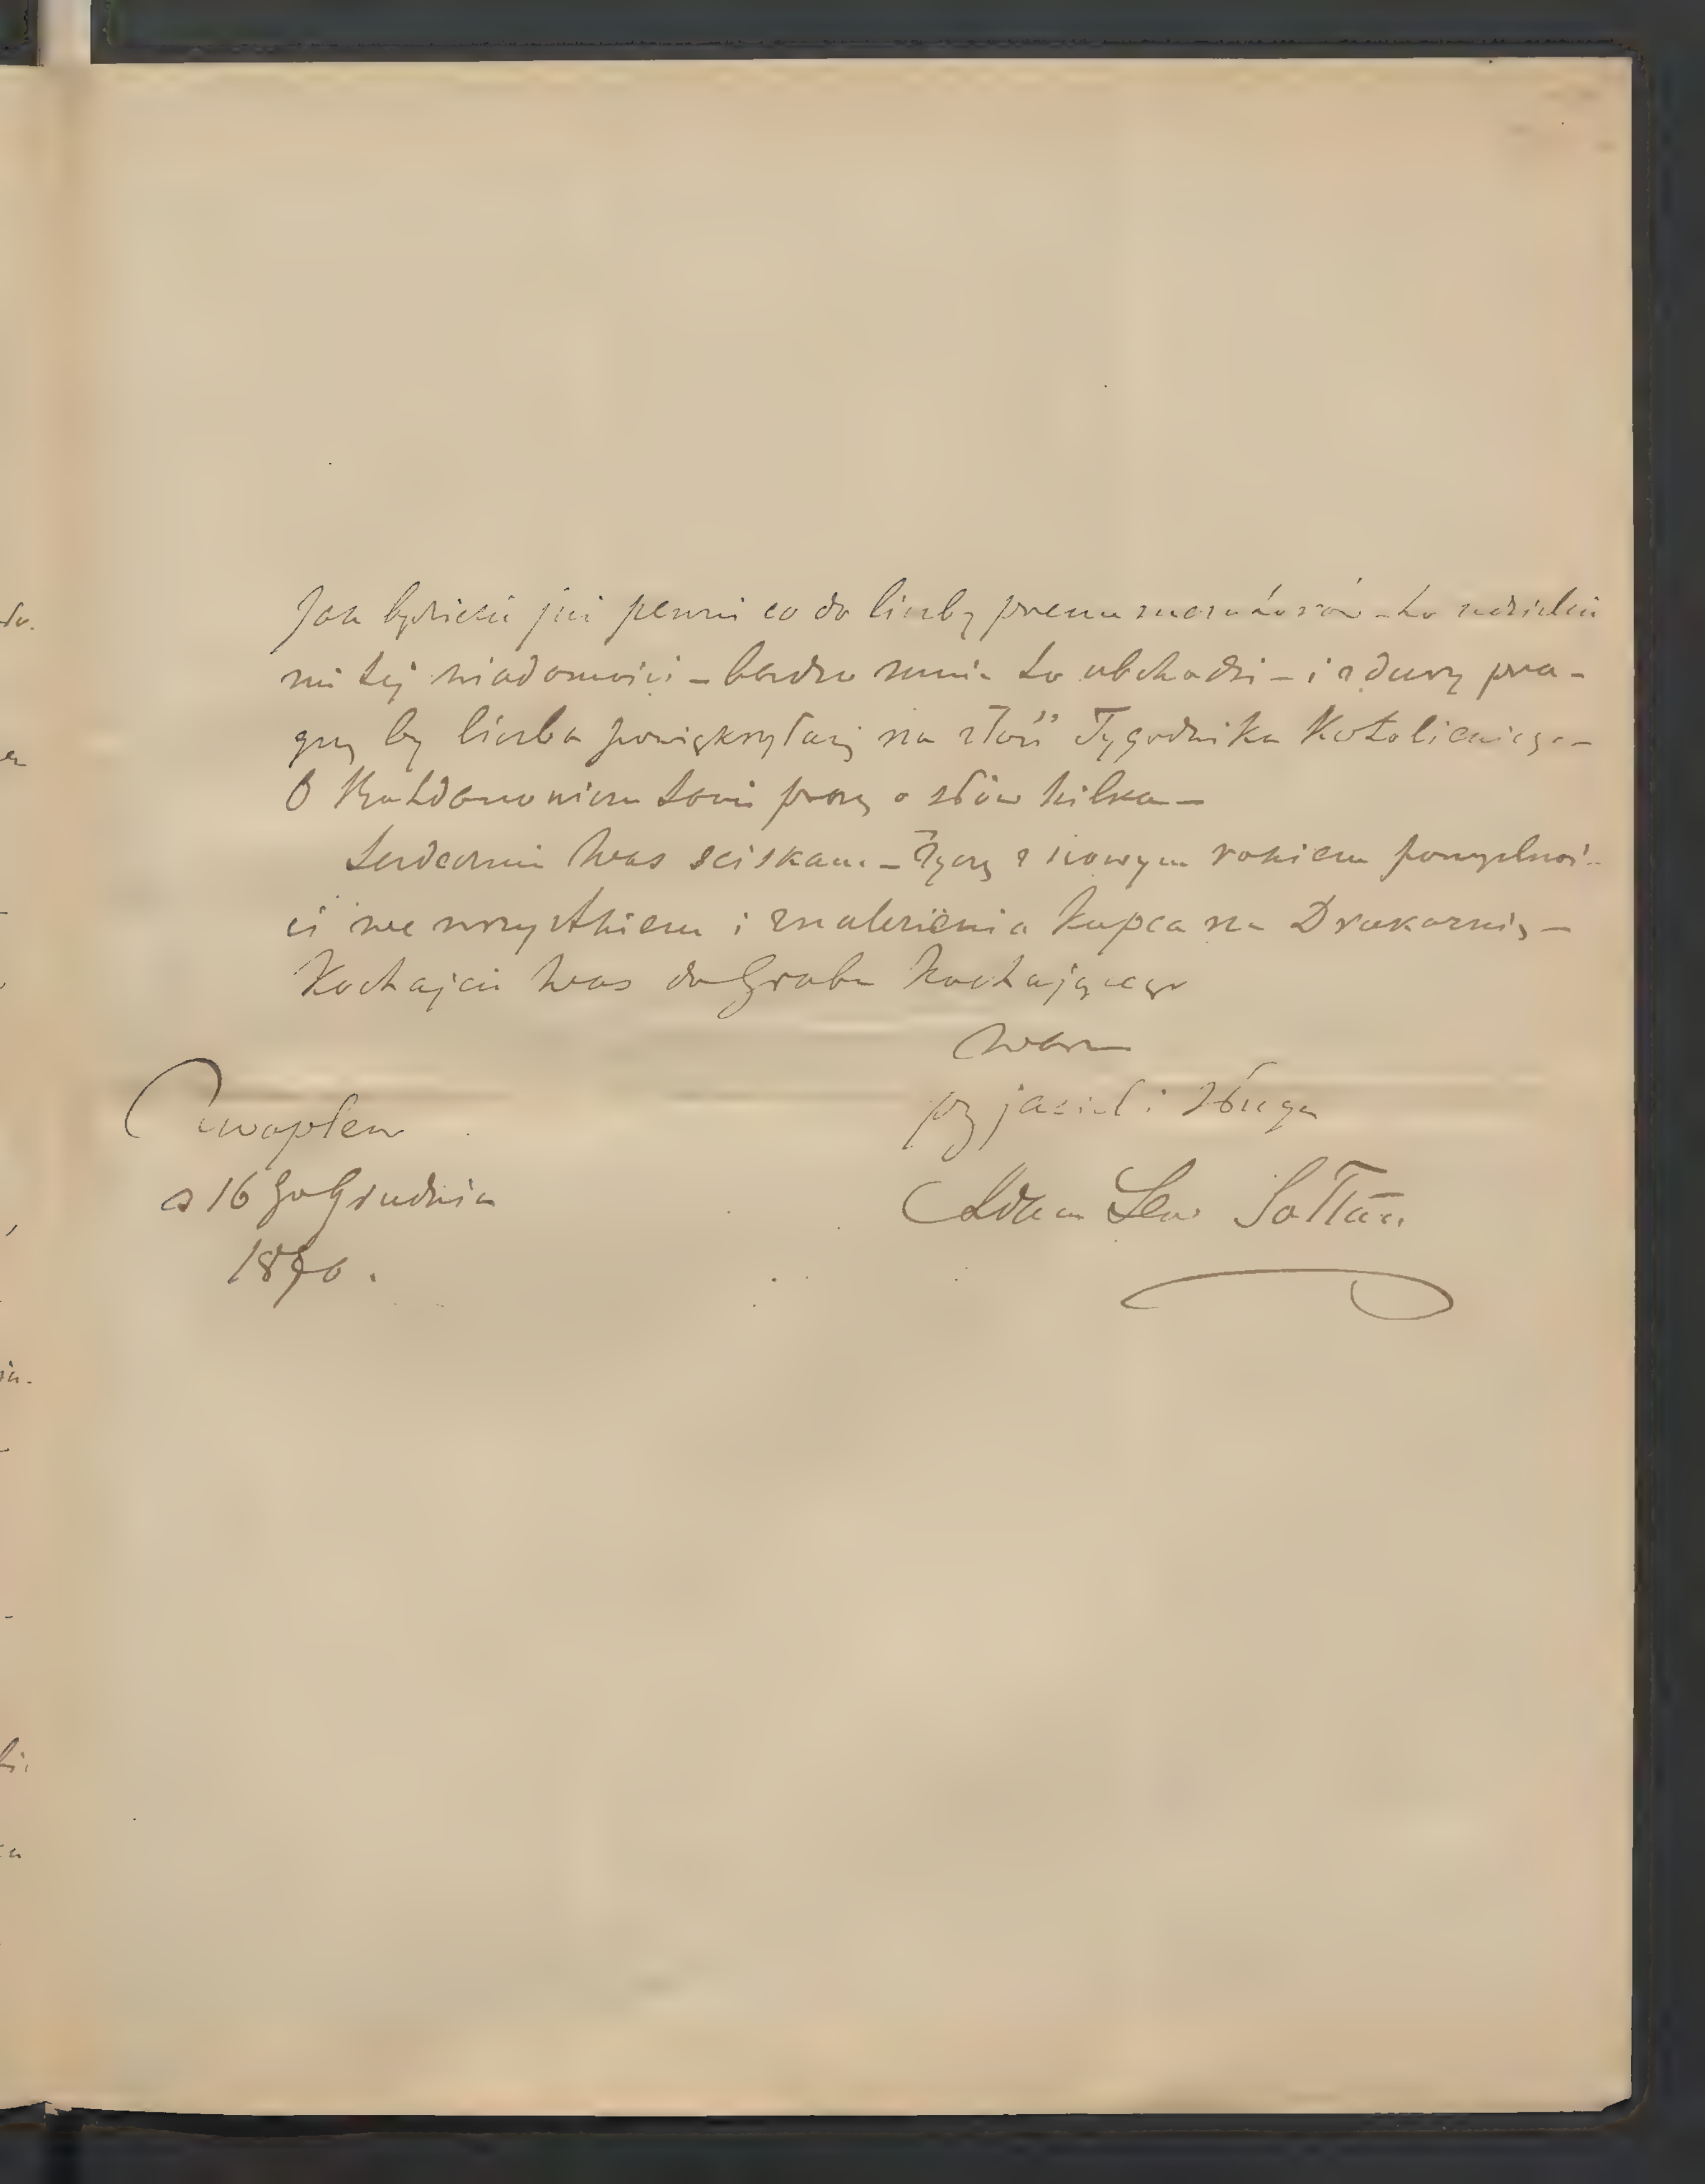 Jak będziecie już pewni co do liczby prenumeratorów – to udzielcie
mi tej wiadomości – bardzo mnie to obchodzi – i z duszy pra-
gnę by liczba powiększyła się na złość Tygodnika Katolickiego –
O proszę o słów kilka –
Serdecznie Was sciskam – Życzę z nowym rokiem pomyślnoś-
ci we wszystkiem i znalezienia kupca na Drukarnię –
Kochajcie Was do Grobu kochającego
Wam
przyjaciel i Sługa
Adam Lew Sołtan
Czwapłew
d 16 go Grudnia
1870.